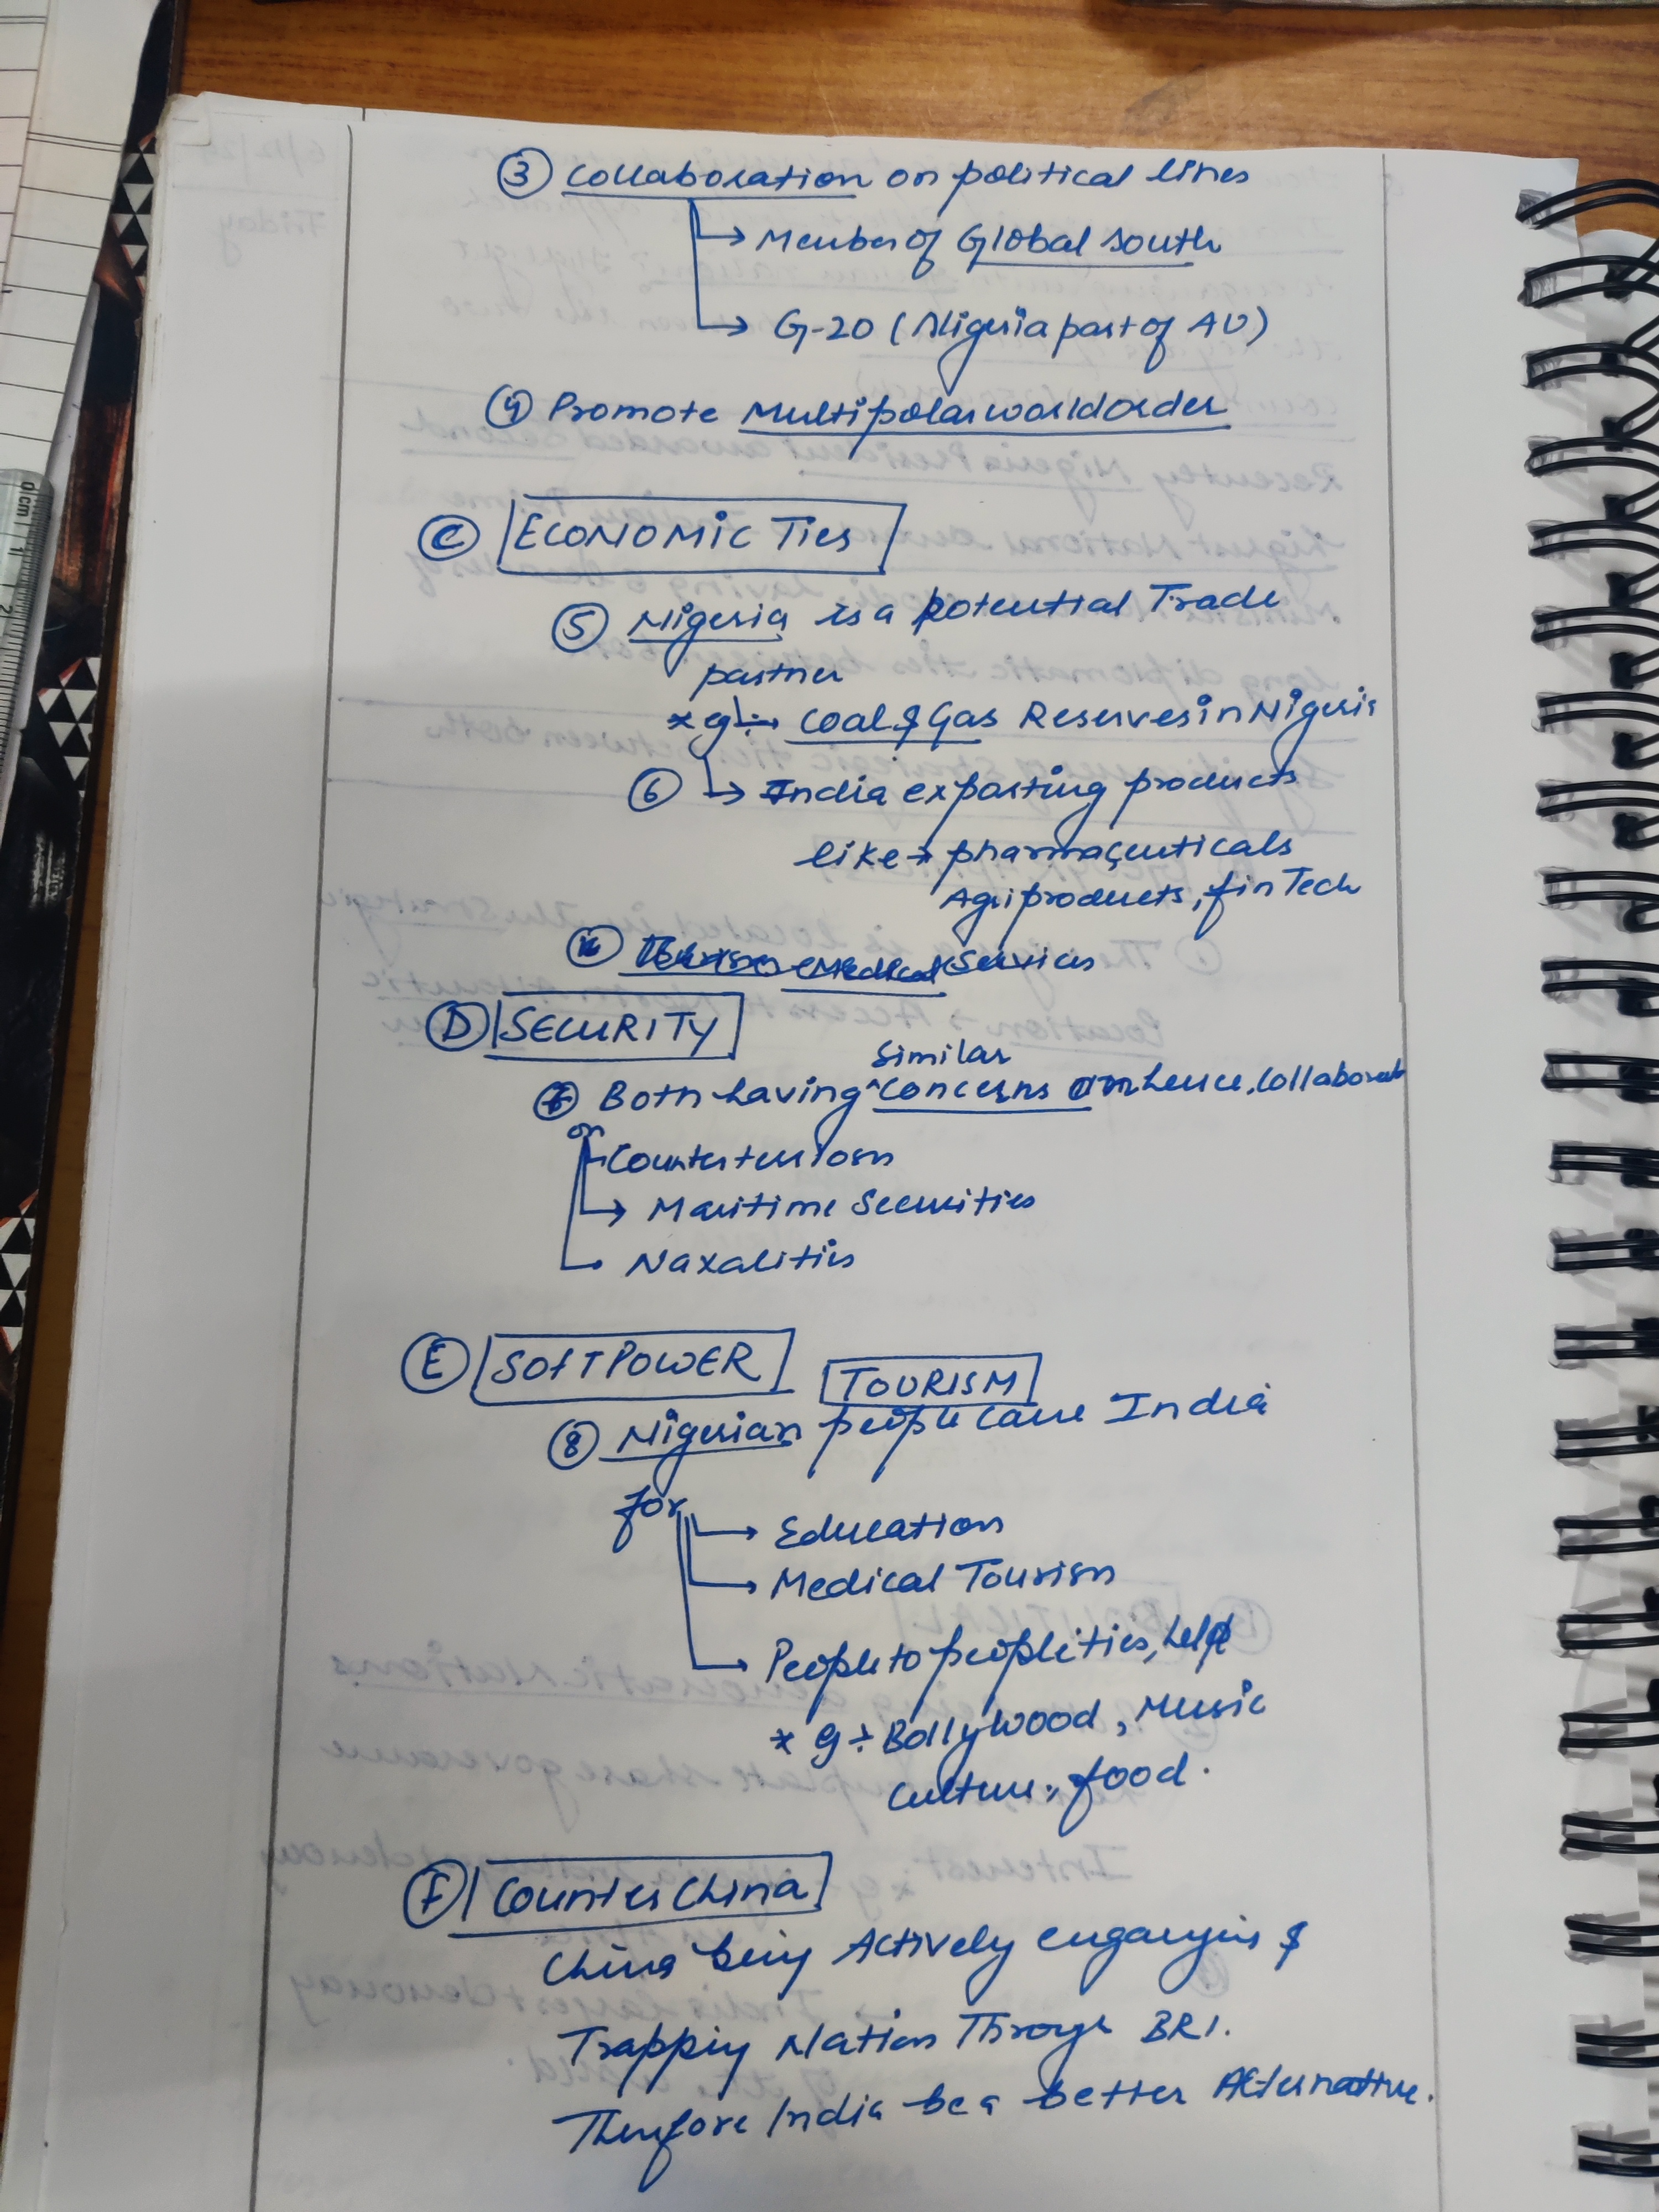 ③ Collaboration on political lines
→ Member of Global South
→ G-20 (Nigeria part of AU)
④ Promote Multipolar world order
Ⓒ ECONOMIC TIES
⑤ Nigeria is a potential Trade
partner
* eg :→ Coal & Gas Reserves in Nigeria
⑥ → India exporting products
like → pharmaceuticals
Agriproducts, finTech
Medical Services
Ⓓ SECURITY
Similar
⑦ Both having ^ concerns hence, collaborate
on
Counter terrosm
→ Maritime Securities
Naxalities
Ⓔ SOFT POWER TOURISM
⑧ Nigerian people came India
for
→ Education
→ Medical Tourism
→ People to people ties, help
* eg :- Bollywood, Music
culture, food.
Ⓕ Counter China
China being Actively enganging &
Trapping Nation Through BRI.
Therefore India be a better Alternative.
0 cm 1 2